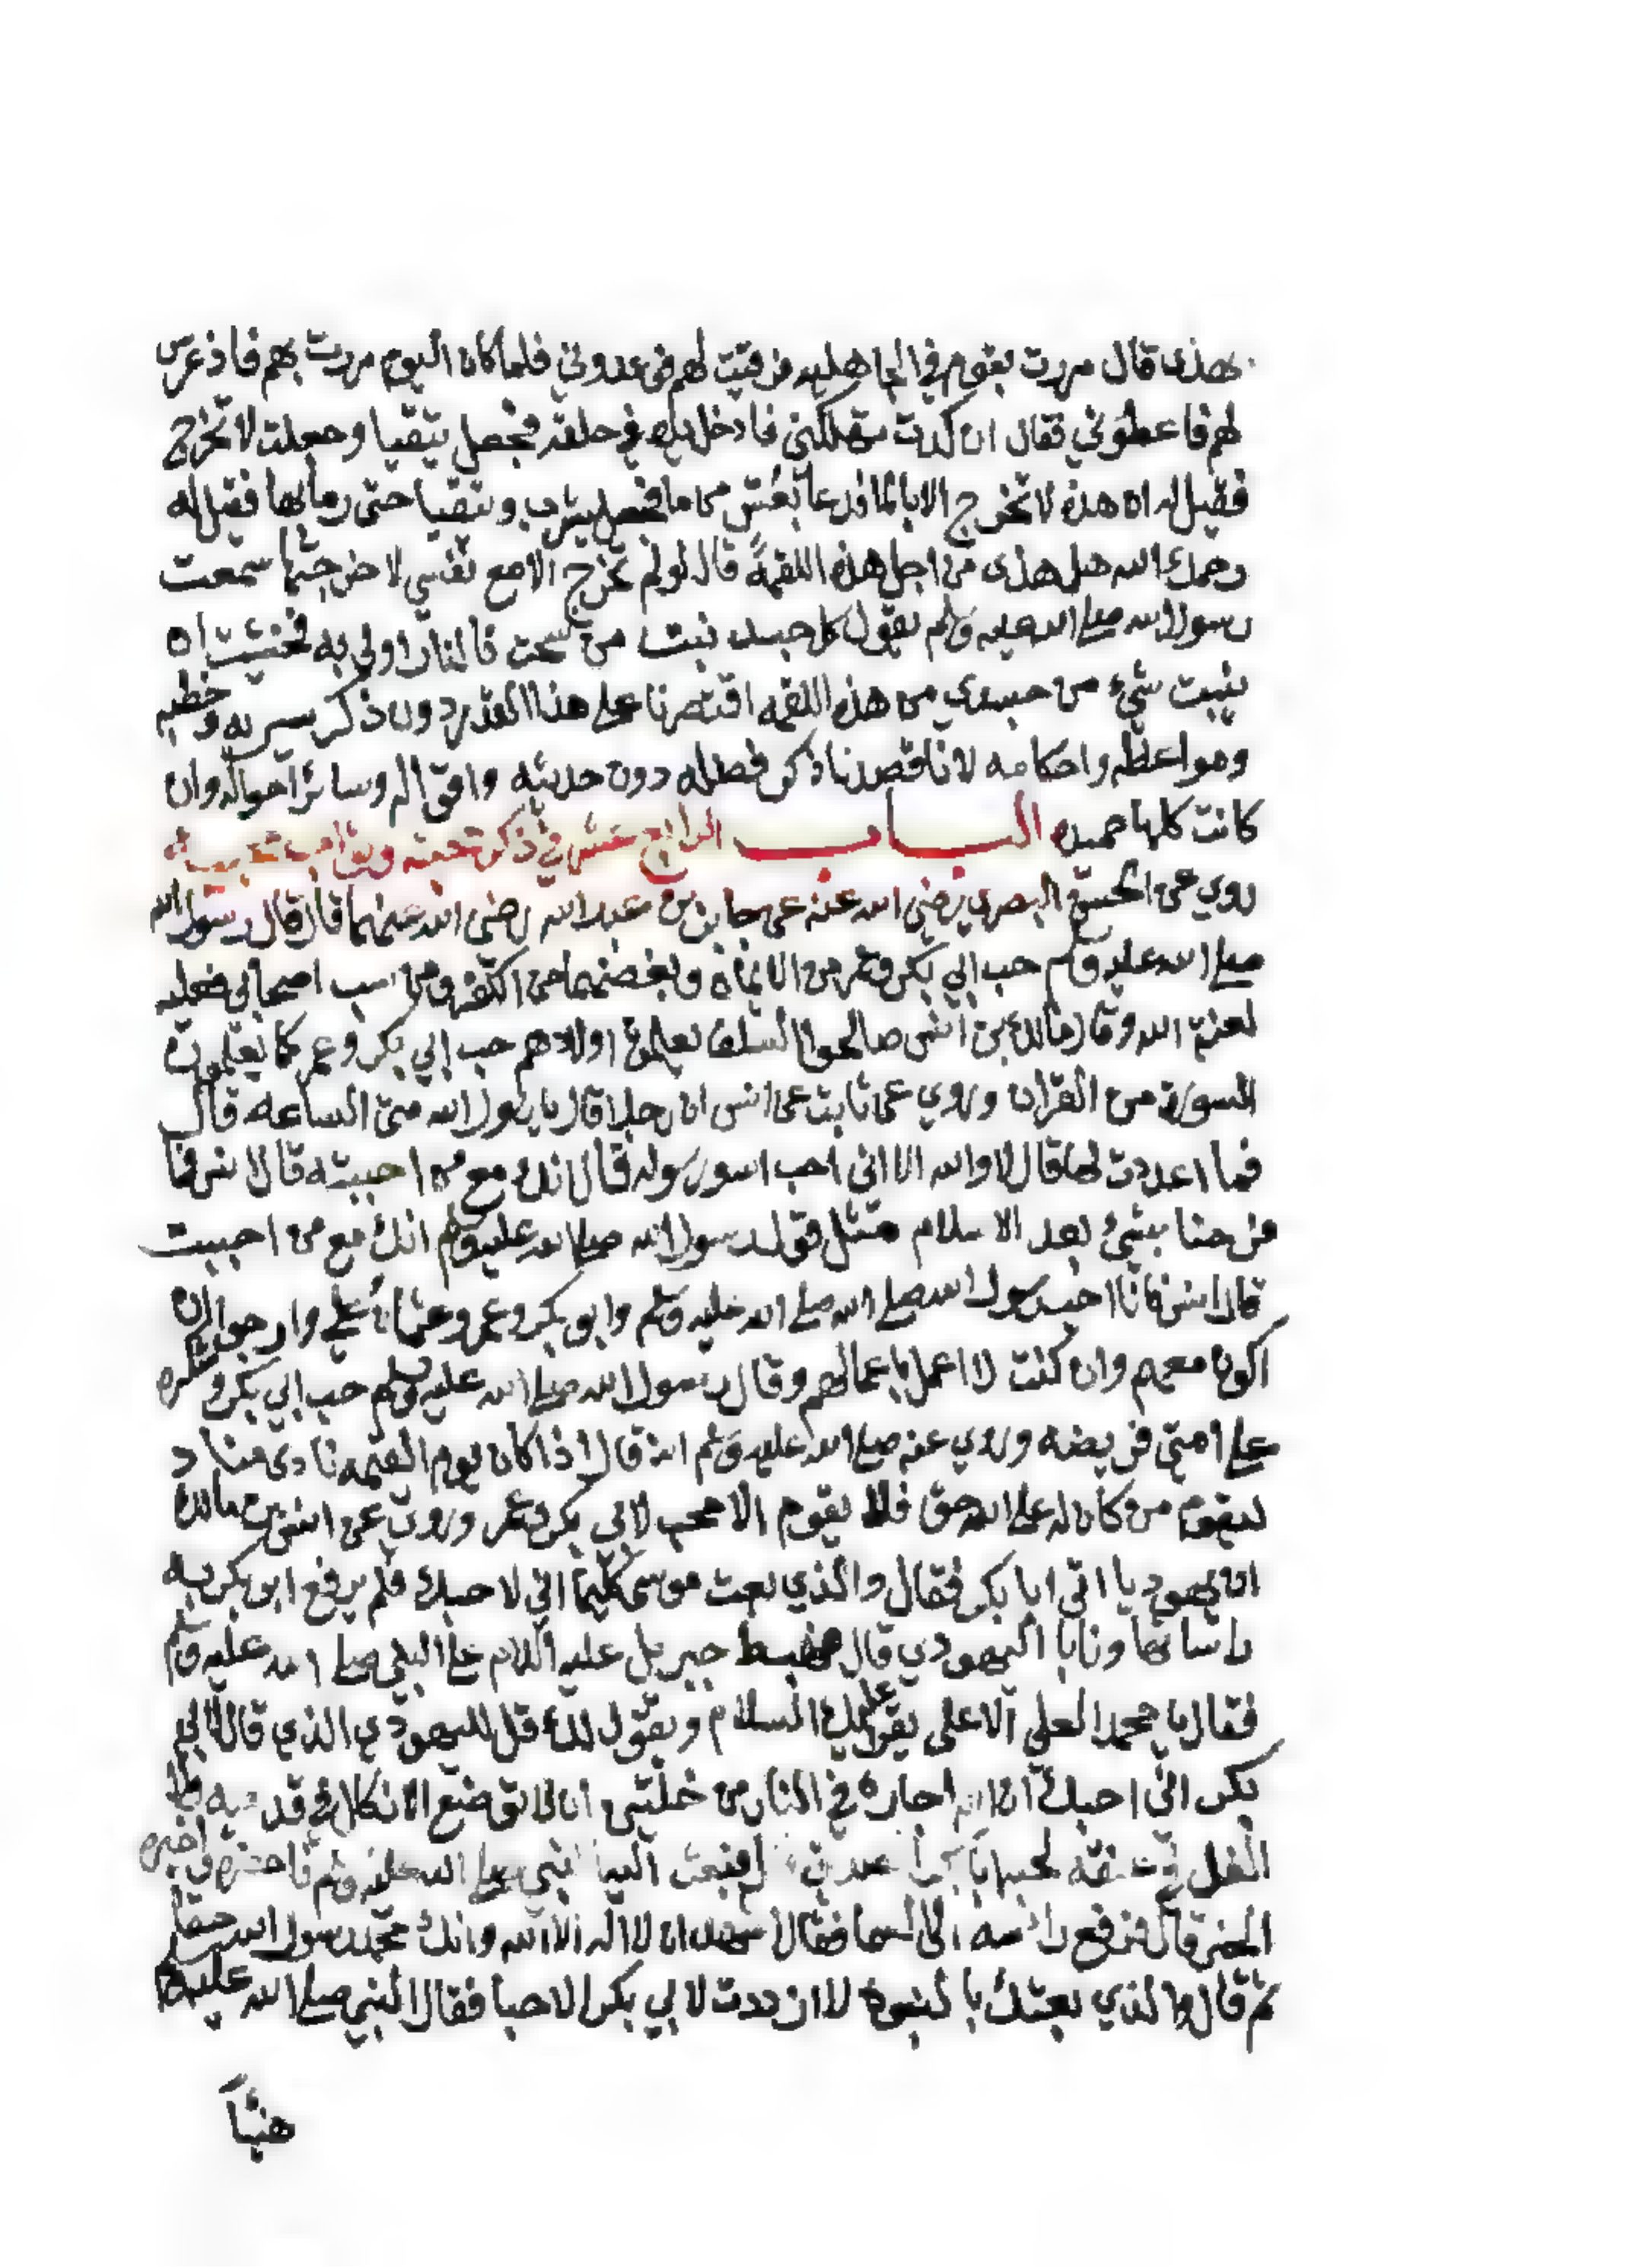 بهذى قال مررت بقوم في الجاهليه فرقيت لهم فوعدوني فلما كان اليوم مررت بهم فاذ عرس
لهم فاعطوني فقال ان كدت تهلكني فادخل يده في حلقه فجعل يتقيا وجعلت لا تخرج
فقيل له ان هذه لا تخرج الا بالما فدعا بعس من ما فجعل يشرب ويتقيا حتى رما بها فقيل له
رحمك الله هل هذى من اجل هذه اللقمة قال لو لم تخرج الا مع نفسي لاخرجتها سمعت
رسول الله صلى الله عليه وسلم يقول كل جسد نبت من سحت فالنار اولى به فخشيت ان
ينبت شيء من جسدي من هذه اللقمه اقتصرنا على هذا القدر دون ذكر سيره وخطبه
ومواعظه واحكامه لانا قصدنا ذكر فضله دون حديثه واقواله وسائر احواله وان
كانت كلها حميده البــاب الرابع عشر في ذكر محبته وثواب محبيه
روي عن الحسن البصري رضي الله عنه عن جابر بن عبد الله رضي الله عنهما قال قال رسول الله
صلى الله عليه وسلم حب ابي بكر وعمر من الايمان وبغضهما من الكفر ومن سب اصحابي فعليه
لعنة الله وقال مالك بن انس صالحوا السلف يعلمون اولادهم حب ابي بكر وعمر كما يعلمون
السورة من القران وروي عن ثابت عن انس ان رجلا قال يا رسول الله متى الساعه قال
فما اعددت لها قال لا والله الا اني احب الله ورسوله قال انك مع من احببته قال انس فما
فرحنا بشيء بعد الاسلام مثل قول رسول الله صلى الله عليه وسلم انك مع من احببت
قال انس فانا احب رسول الله صلى الله صلى الله عليه وسلم وابو بكر وعمر وعثمان وعلي وارجوا ان
اكون معهم وان كنت لا اعمل باعمالهم وقال رسول الله صلى الله عليه وسلم حب ابي بكر وشكره
على امتي فريضه وروي عنه صلى الله عليه وسلم انه قال اذا كان يوم القيمه نادى مناد
ليقوم من كان له على الله حق فلا يقوم الا محب لابي بكر وعمر وروي عن انس بن مالك
ان يهوديا اتى ابا بكر فقال والذي بعث موسى كليما اني لاحبك فلم يرفع ابو بكر به
راسا تهاونا باليهودي قال فهبط جبريل عليه السلام على النبي صلى الله عليه وسلم
فقال يا محمد العلي الاعلى يقرا عليك السلام ويقول لك قل لليهودي الذي قال لابي
بكر اني احبك ان الله اجاره في النار من خلتين ان لا توضع الانكال في قدميه ولا
الغل في عنقه لحبه ابا بكر فبعث النبي صلى الله عليه وسلم فاحضره فاخبره
الخبر قال فرفع راسه الى السما فقال اشهد ان لا اله الا الله وانك محمد رسول الله حقا
ثم قال والذي بعثك بالنبوة لا ازددت لابي بكر الا حبا فقال النبي صلى الله عليه وسلم
هنيأ